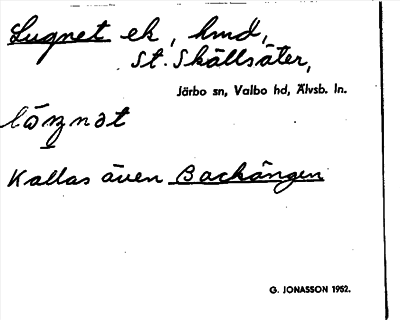 Lugnet ek, hmd,
St. Skällsäter,
Järbo sn, Valbo hd, Älvsb. ln.
Kallas även Backängen
G. JONASSON 1952.